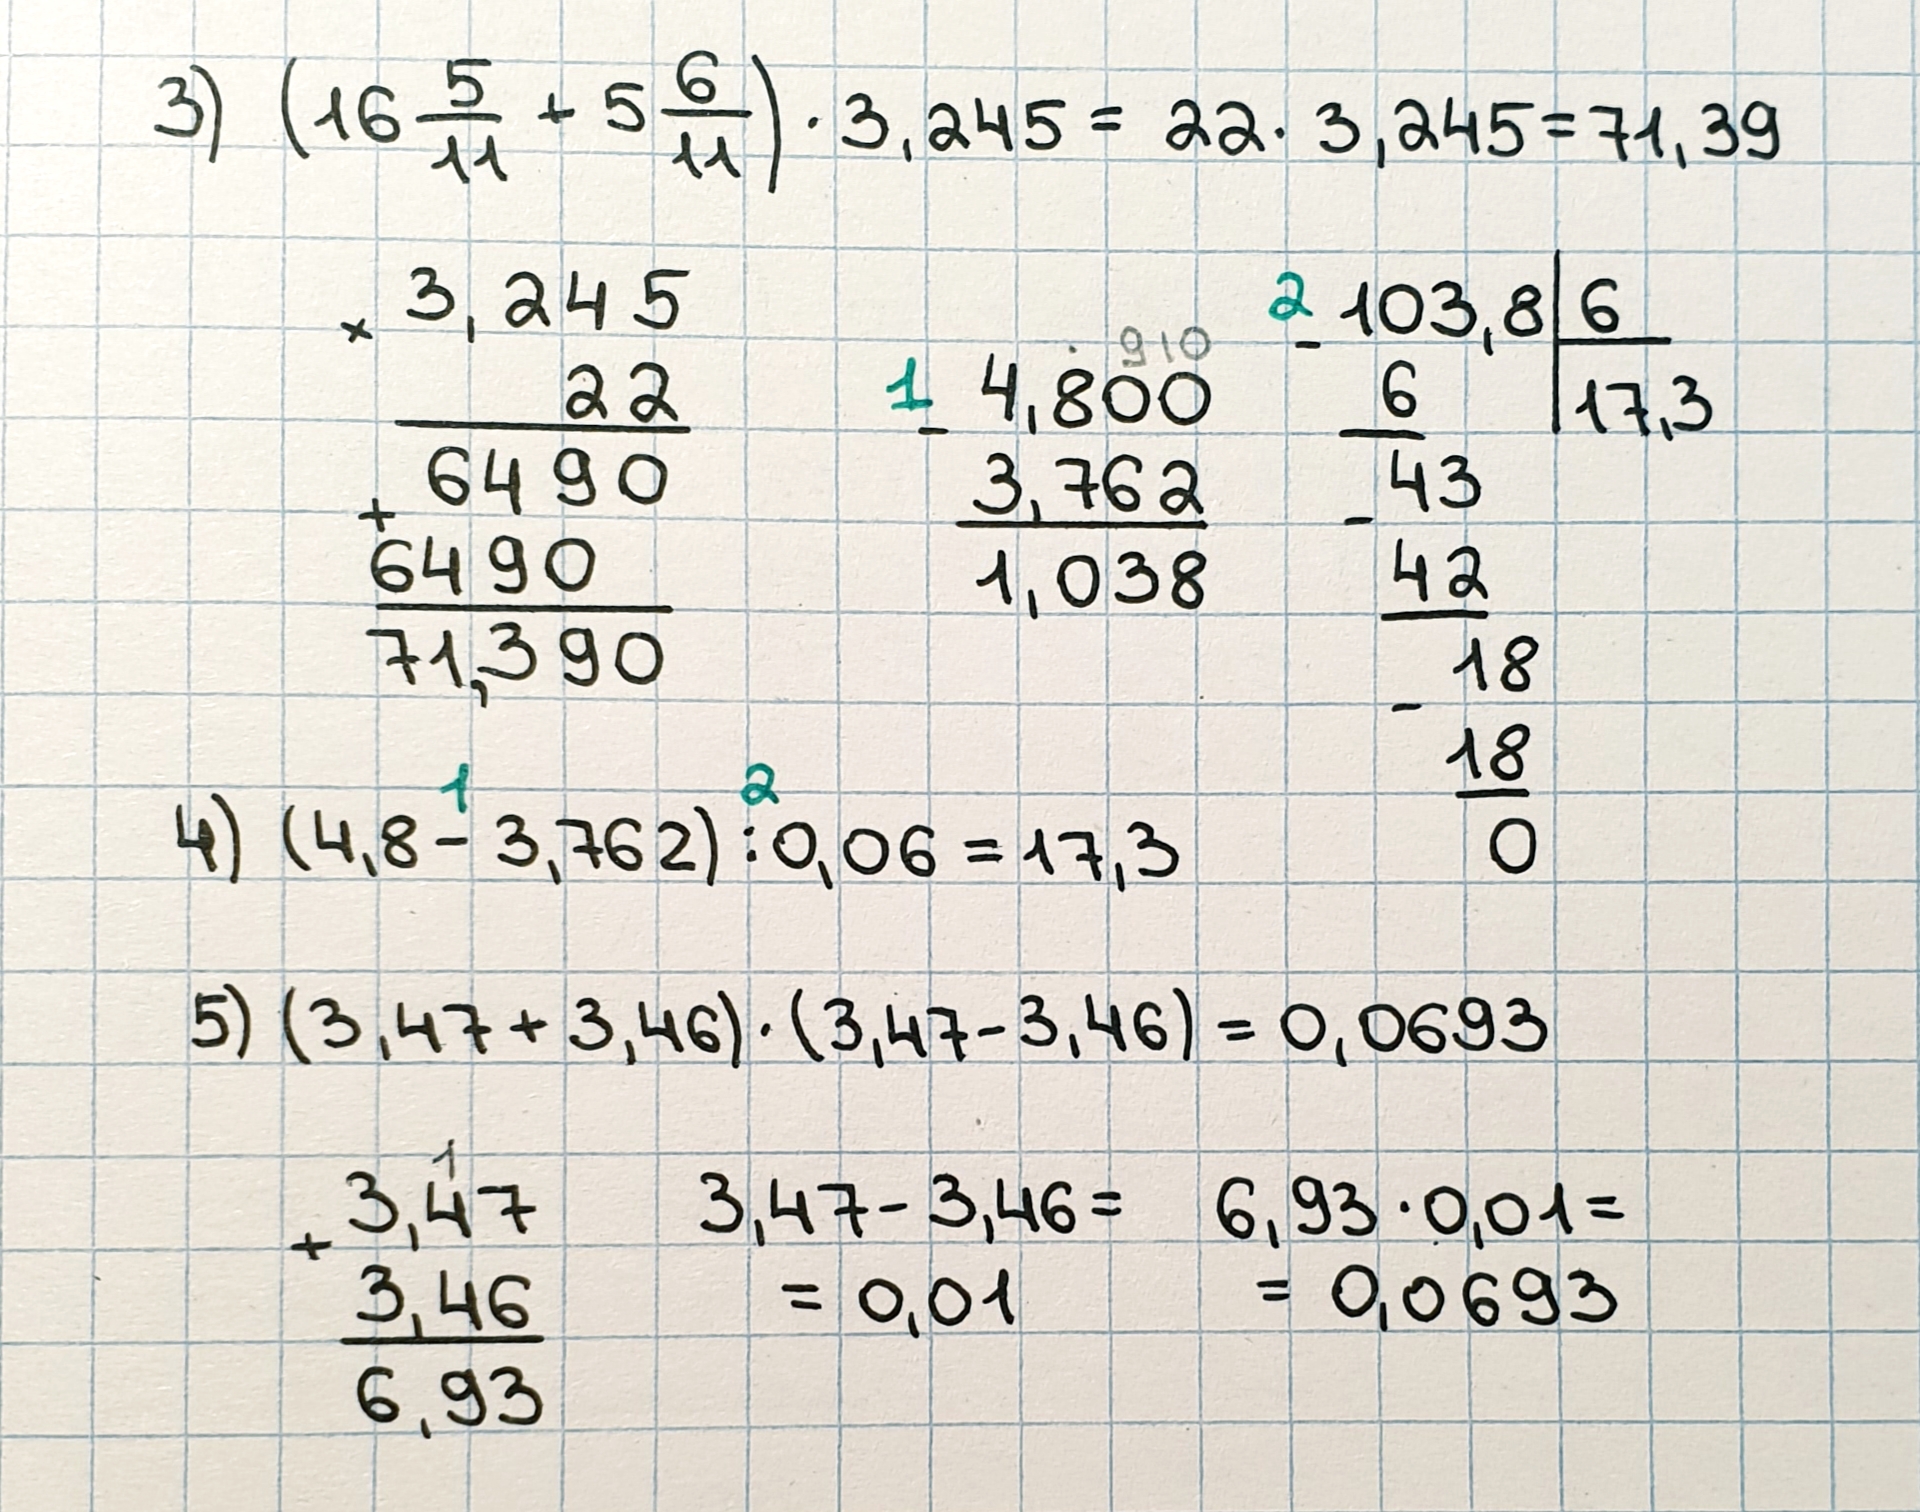 3) (16 5/11 + 5 6/11) · 3,245 = 22 · 3,245 = 71,39
× 3,245
22
6490
+
6490
71,390
9 10
1 - 4,800
3,762
1,038
2 - 103,8 | 6
6 17,3
43
-
42
18
-
18
0
1 2
4) (4,8 - 3,762) : 0,06 = 17,3
5) (3,47 + 3,46) · (3,47 - 3,46) = 0,0693
1
+ 3,47
3,46
6,93
3,47 - 3,46 =
= 0,01
6,93 · 0,01 =
= 0,0693